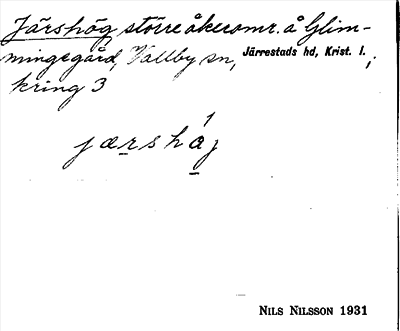 Järshög större åkeromr. å Glim-
mingegård, Vallby sn, Järrestads hd, Krist. l.;
kring 3
jærshög
NILS NILSSON 1931